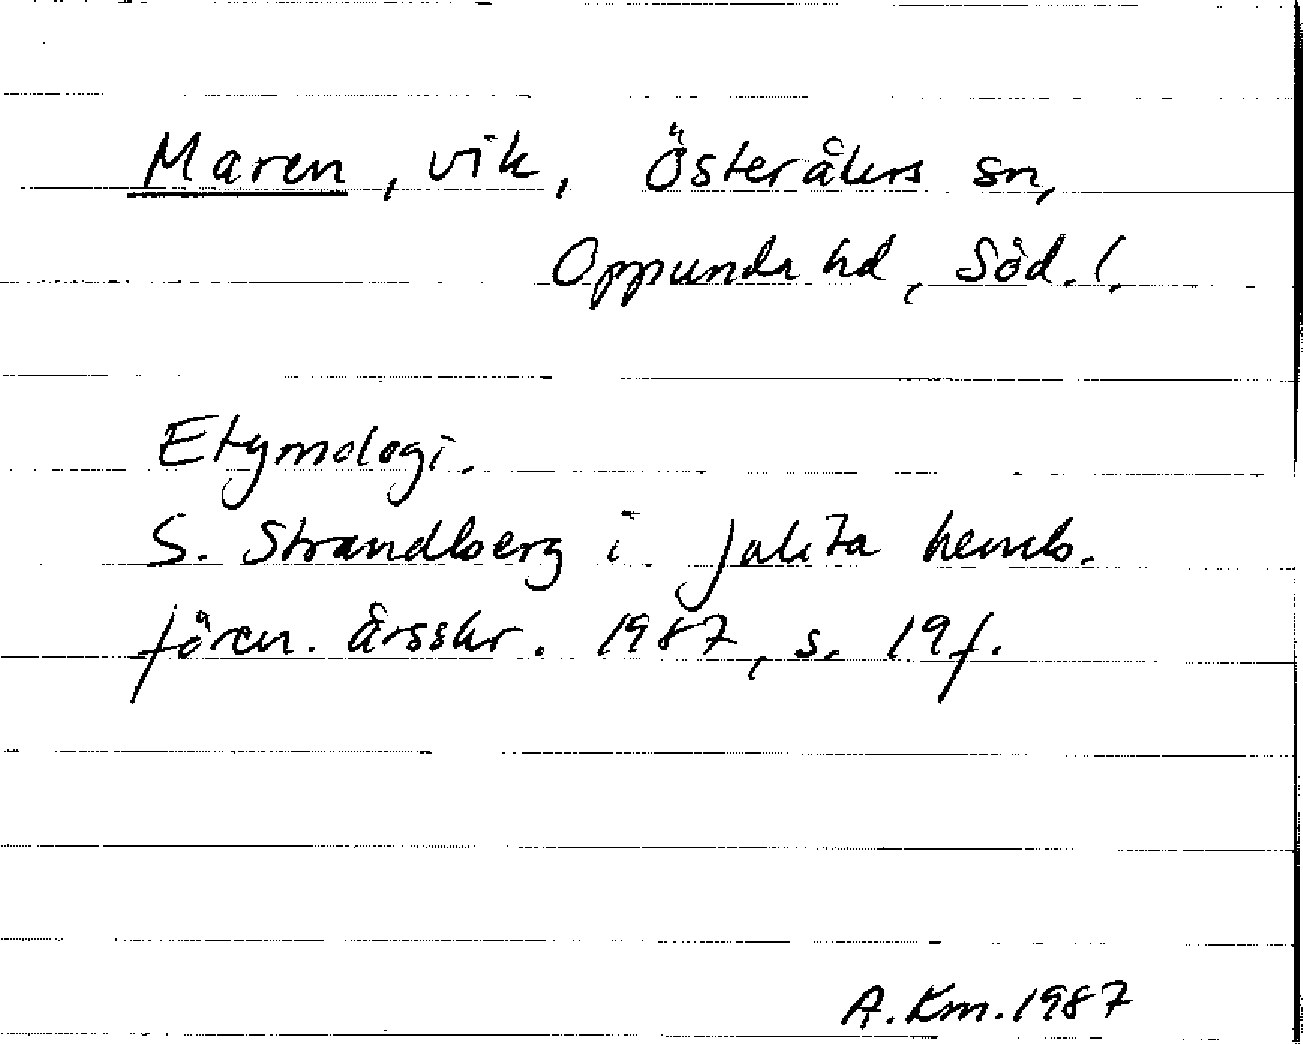 Maren, vik, Österåkers sn,
Oppunda hd, Söd. l.
Etymologi.
S. Strandberg i Julita hemb.
fören. årsskr. 1987, s. 19 f.
A. Km. 1987